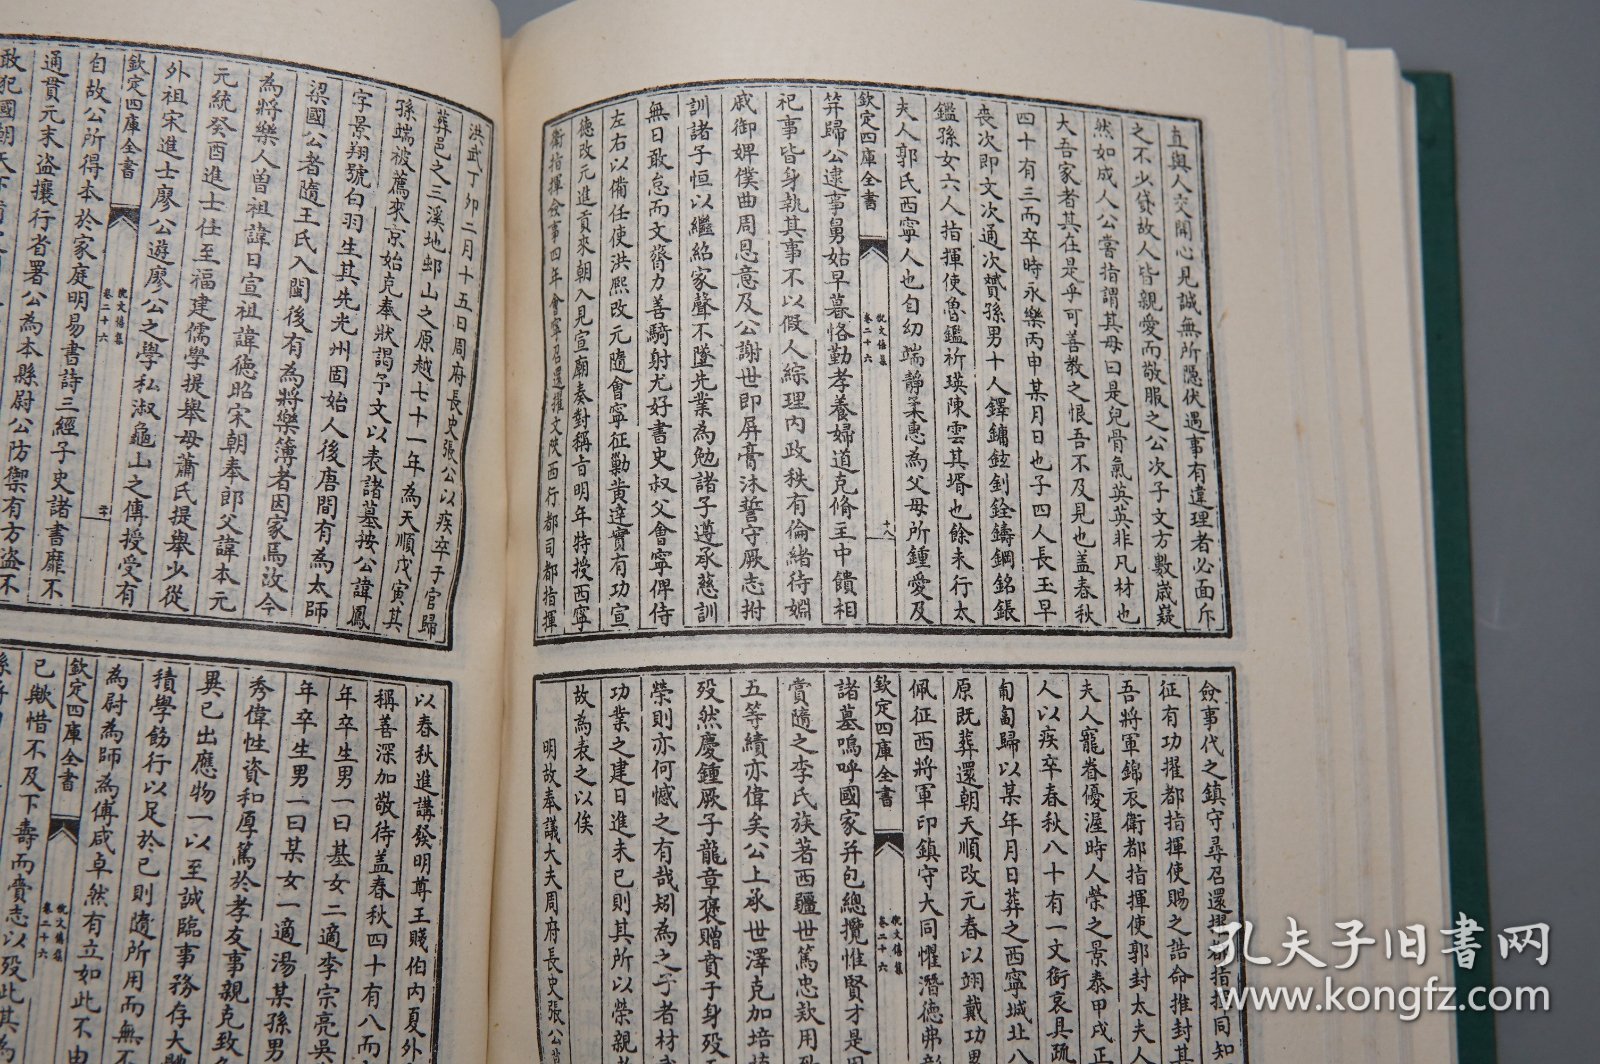 直與人交開心見誠無所隱伏遇事有違理者必面斥
之不少貸故人皆親愛而敬服之公次子文方數歲嶷
然如成人公嘗指謂其母曰是兒骨氣英英非凡材也
大吾家者其在是乎可善教之恨吾不及見也蓋春秋
四十有三而卒時永樂丙申某月日也子四人長玉早
喪次即文次通次贇孫男十人鐸鏞鉉釗銓鑄鋼銘鋹
鑑孫女六人指揮使魯鑑祈瑛陳雲其壻也餘未行太
夫人郭氏西寧人也自幼端靜柔惠為父母所鍾愛及
欽定四庫全書
倪文僖集
卷二十六
十八
笄歸公逮事舅姑早暮恪勤孝養婦道克脩主中饋相
祀事皆身執其事不以假人綜理內政秩有倫緒待姻
戚御婢僕曲周恩意及公謝世即屏膏沐誓守厥志拊
訓諸子恒以繼紹家聲不墜先業為勉諸子遵承慈訓
無日敢怠而文膂力善騎射尤好書史叔父會寧俾侍
左右以備任使洪熙改元隨會寧征勦黄達實有功宣
德改元進貢來朝入見宣廟奏對稱旨明年特授西寧
衛指揮僉事四年會寧召還擢文陜西行都司都指揮
僉事代之鎮守尋召還擢都指揮同知
征有功擢都指揮使賜之誥命推封其
吾將軍錦衣衛都指揮使郭封太夫人
夫人寵眷優渥時人榮之景泰甲戌正
人以疾卒春秋八十有一文銜哀具疏
匍匐歸以某年月日葬之西寧城北八
原既葬還朝天順改元春以翊戴功
佩征西將軍印鎮守大同懼潛德弗彰
欽定四庫全書
倪文僖集
卷二十六
諸墓嗚呼國家并包總攬惟賢才是用
賞隨之李氏族著西疆世篤忠欵用
五等績亦偉矣公上承世澤克加培
歿然慶鍾厥子龍章褒贈賁于身歿
榮則亦何憾之有哉矧為之子者材
功業之建日進未已則其所以榮親
故為表之以俟
明故奉議大夫周府長史張公
洪武丁卯二月十五日周府長史張公以疾卒于官歸
葬邑之三溪地邺山之原越七十一年為天順戊寅其
孫端被薦來京始克奉狀謁予文以表諸墓按公諱鳳
字景翔號白羽生其先光州固始人後唐間有為太師
梁國公者隨王氏入閩後有為將樂簿者因家焉故今
為將樂人曾祖諱日宣祖諱德昭宋朝奉郎父諱本元
元統癸酉進士仕至福建儒學提舉母蕭氏提舉少從
外祖宋進士廖公遊廖公之學私淑龜山之傳授受有
欽定四庫全書
倪文僖集
卷二十六
自故公所得本於家庭明易書詩三經子史諸書靡不
通貫元末盜攘行省署公為本縣尉公防禦有方盜不
敢犯國朝
以春秋進講發明尊王賤伯內夏外
稱善深加敬待蓋春秋四十有八而
年卒生男一曰基女二適李宗亮吳
年卒生男一曰某女一適湯某孫男
秀偉性資和厚篤於孝友事親克致
異已出應物一以至誠臨事務存大體
積學飭行以足於己則隨所用而無不
為尉為師為傅咸卓然有立如此不由
欽定四庫全書
倪文僖集
卷二十六
已歟惜不及下壽而賫志以歿此其為
孔夫子旧书网
www.kongfz.com